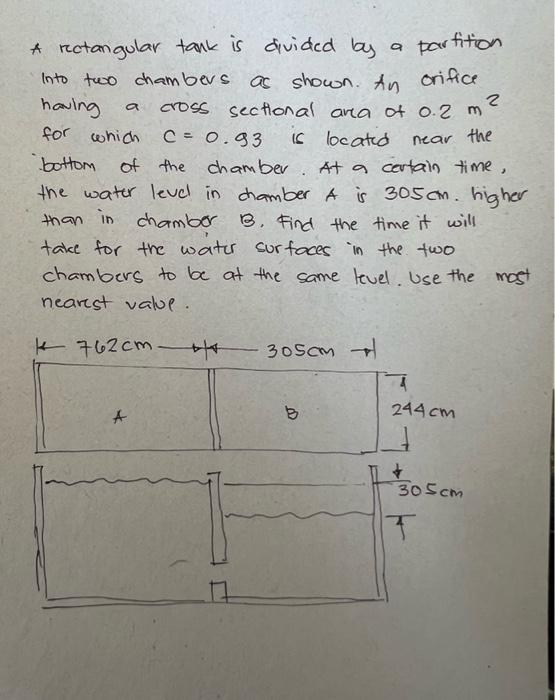 A rectangular tank is divided by a partition
into two chambers as shown. An orifice
having a cross sectional area of 0.2 m²
for which C = 0.93 is located near the
bottom of the chamber. At a certain time,
the water level in chamber A is 305cm. higher
than in chamber B. Find the time it will
take for the water surfaces in the two
chambers to be at the same level. Use the most
nearest value.
762cm 305cm
A B 244cm
305cm